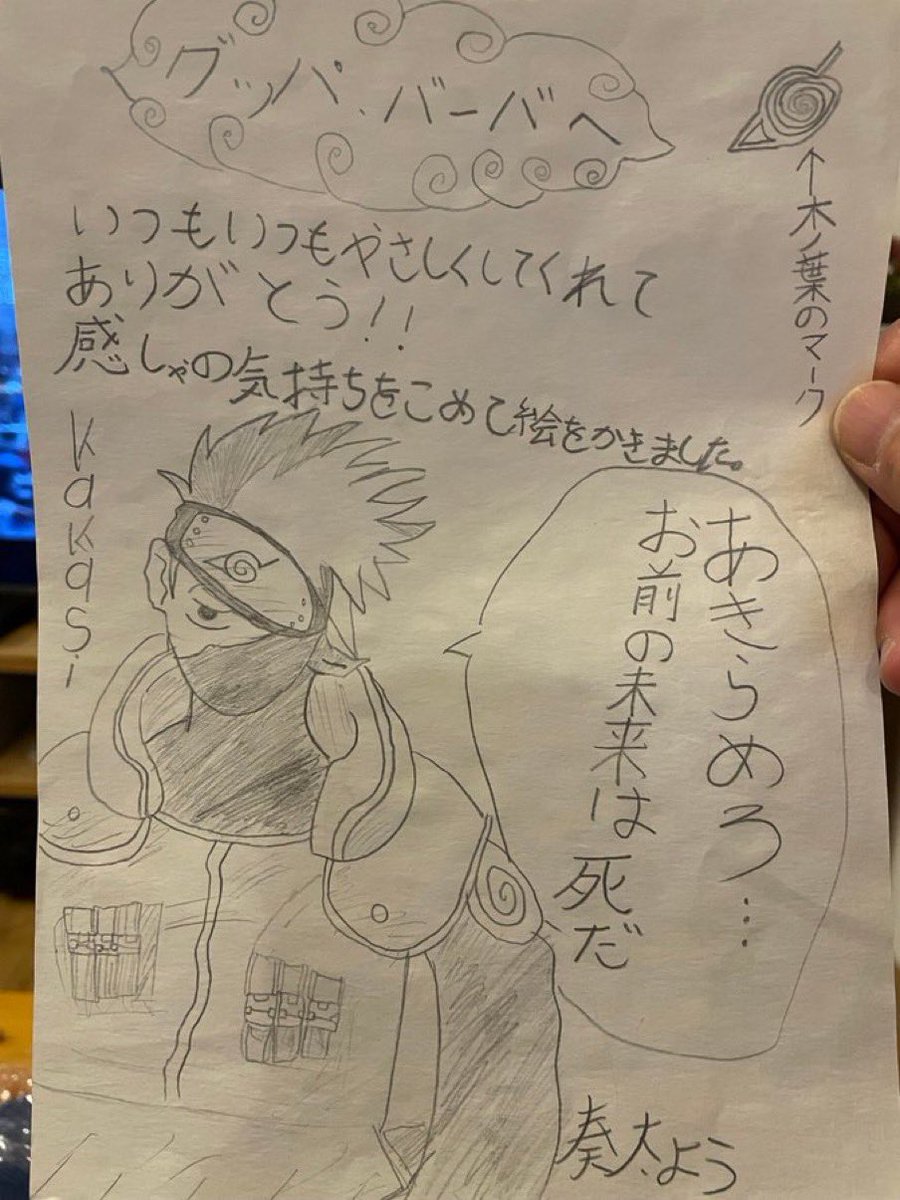 グッパ・バーバへ
↑木ノ葉のマーク
いつもいつもやさしくしてくれて
ありがとう!!
感しゃの気持ちをこめて絵をかきました。
Kakasi
あきらめろ…
お前の未来は死だ
奏太よう